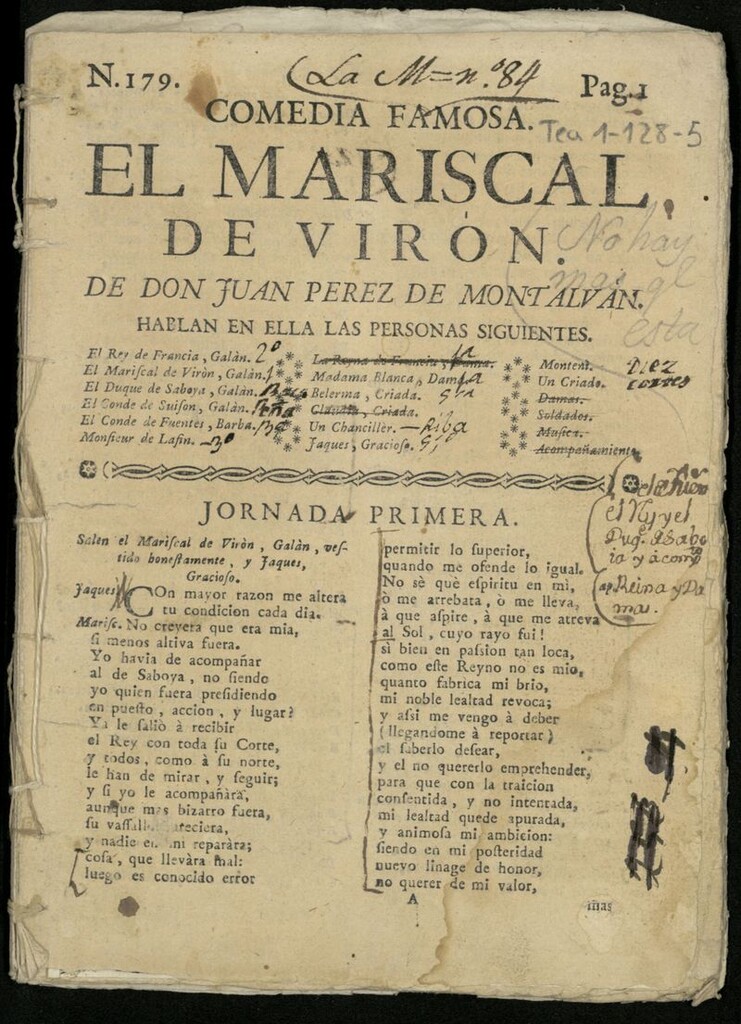 N.179.
(La M=n.º 84
Pag.1
COMEDIA FAMOSA.
Tea 1-128-5
EL MARISCAL,
DE VIRÒN.
No hay
mas ql
esta
DE DON JUAN PEREZ DE MONTALVÁN.
HABLAN EN ELLA LAS PERSONAS SIGUIENTES.
El Rey de Francia, Galàn. 2º
El Mariſcal de Viròn, Galàn. 1
El Duque de Saboya, Galàn.
El Conde de Suiſon, Galàn. Peña
El Conde de Fuentes, Barba.
Monſieur de Lafin. 3º
La Reyna de Francia, Dama.
Madama Blanca, Dama.
Belerma, Criada.
Claudia, Criada.
Un Chancillèr. Riba
Jaques, Gracioſo.
Montení.
Un Criado.
Damas.
Soldados.
Muſica.
Acompañamiento.
Diez
JORNADA PRIMERA.
Salen el Mariſcal de Viròn, Galàn, veſ-
tido honeſtamente, y Jaques,
Gracioſo.
Jaques. COn mayor razon me altera
tu condicion cada dia.
Mariſc. No creyera que era mia,
ſi menos altiva fuera.
Yo havia de acompañar
al de Saboya, no ſiendo
yo quien fuera preſidiendo
en pueſto, accion, y lugar?
Ya le ſaliò à recibir
el Rey con toda ſu Corte,
y todos, como à ſu norte,
le han de mirar, y ſeguir;
y ſi yo le acompañàra,
aunque mas bizarro fuera,
ſu vaſſall. areciera,
y nadie en mi reparàra;
coſa, que llevàra mal:
luego es conocido error
permitir lo ſuperior,
quando me ofende lo igual.
No sè què eſpiritu en mì,
ò me arrebata, ò me lleva,
à que aſpire, à que me atreva
al Sol, cuyo rayo fuì!
ſi bien en paſsion tan loca,
como eſte Reyno no es mio,
quanto fabrica mi brio,
mi noble lealtad revoca;
y aſsi me vengo à deber
(llegandome à reportar)
el ſaberlo deſear,
y el no quererlo emprehender,
para que con la traicion
conſentida, y no intentada,
mi lealtad quede apurada,
y animoſa mi ambicion:
ſiendo en mi poſteridad
nuevo linage de honor,
no querer de mi valor,
el Ry y el
Duq. d Sabo
ia y acomp
Reina y Da
mas.
A
mas